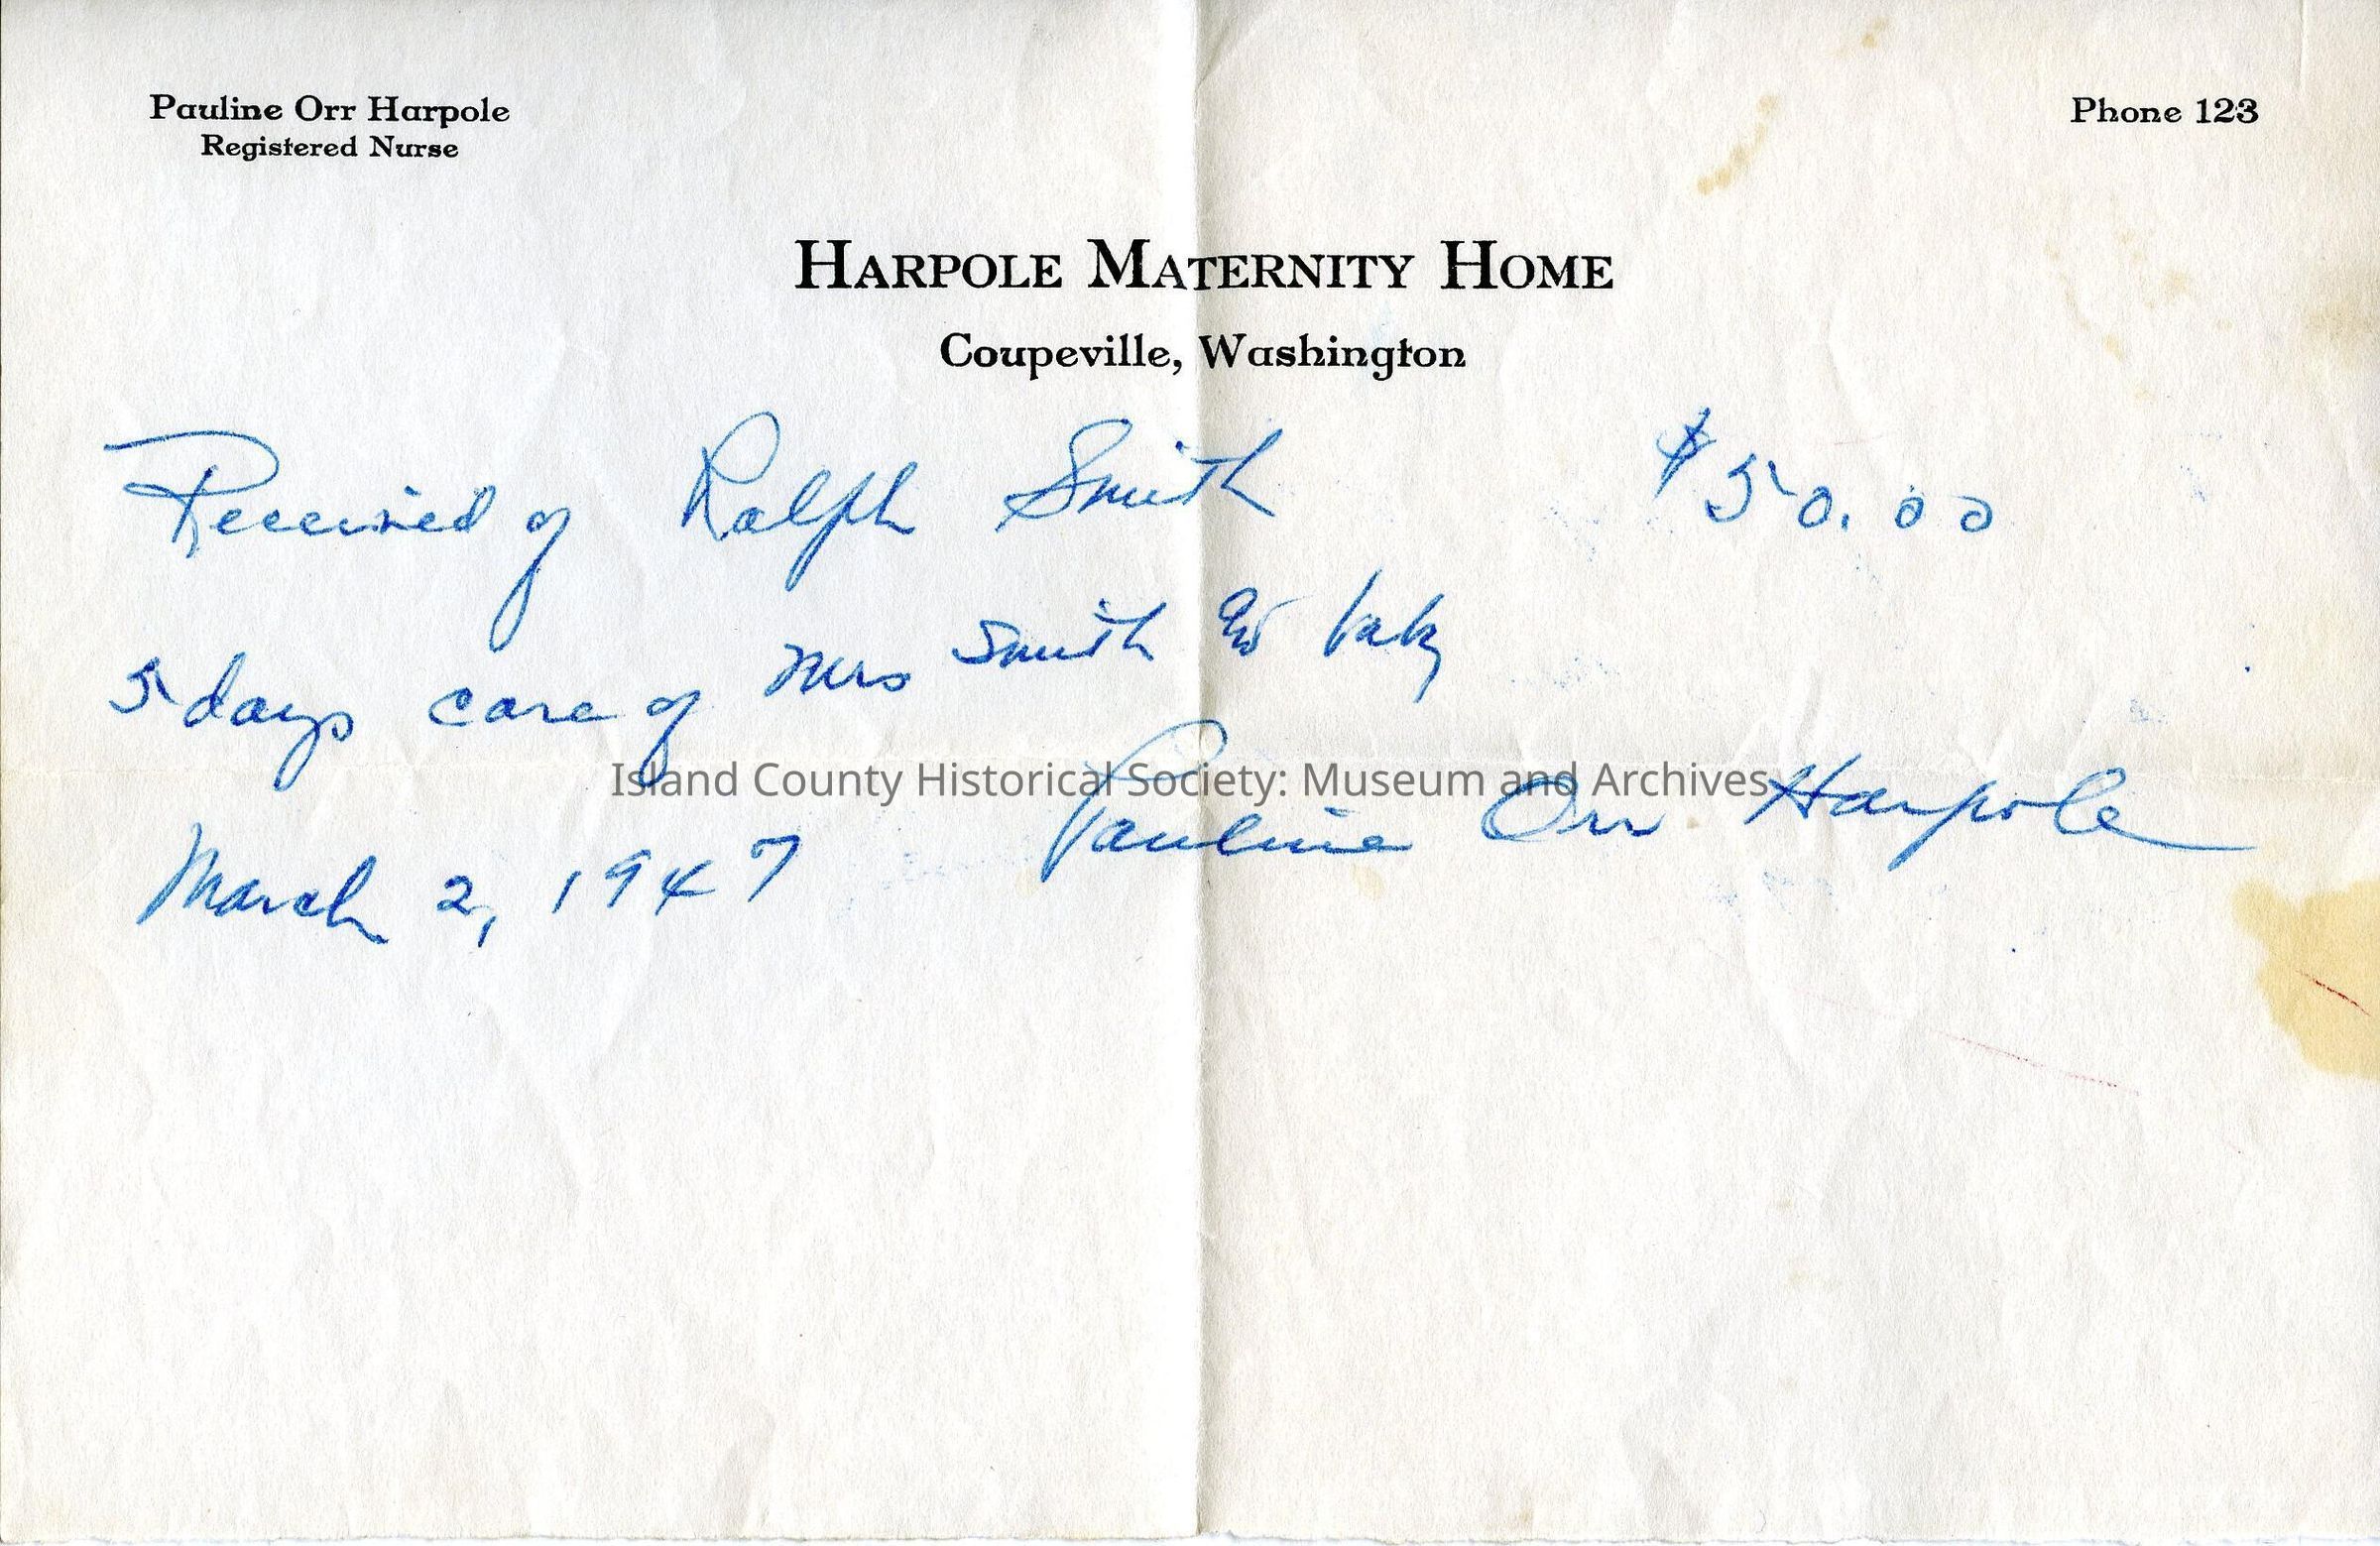 Pauline Orr Harpole
Registered Nurse
Phone 123
HARPOLE MATERNITY HOME
Coupeville, Washington
Received of Ralph Smith $50.00
5 days care of Mrs Smith & baby
Island County Historical Society: Museum and Archives
Pauline Orr Harpole
March 2, 1947